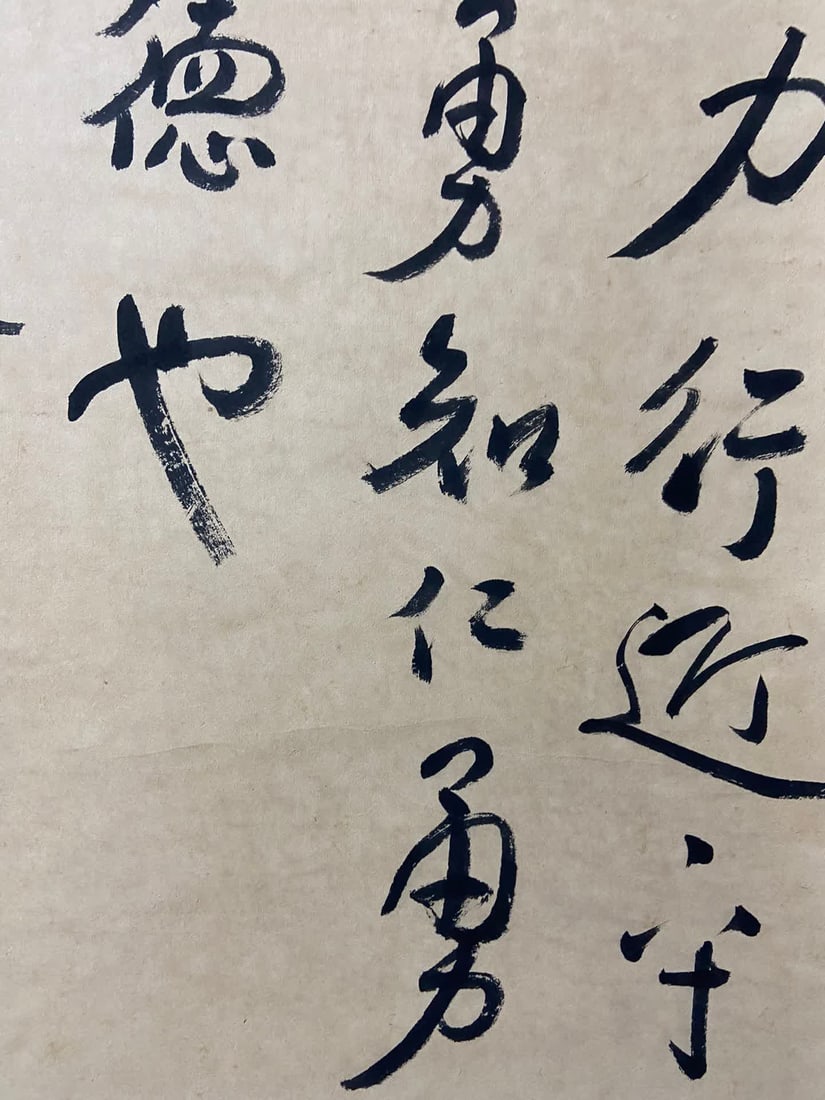 力行近乎
勇知仁勇
德也